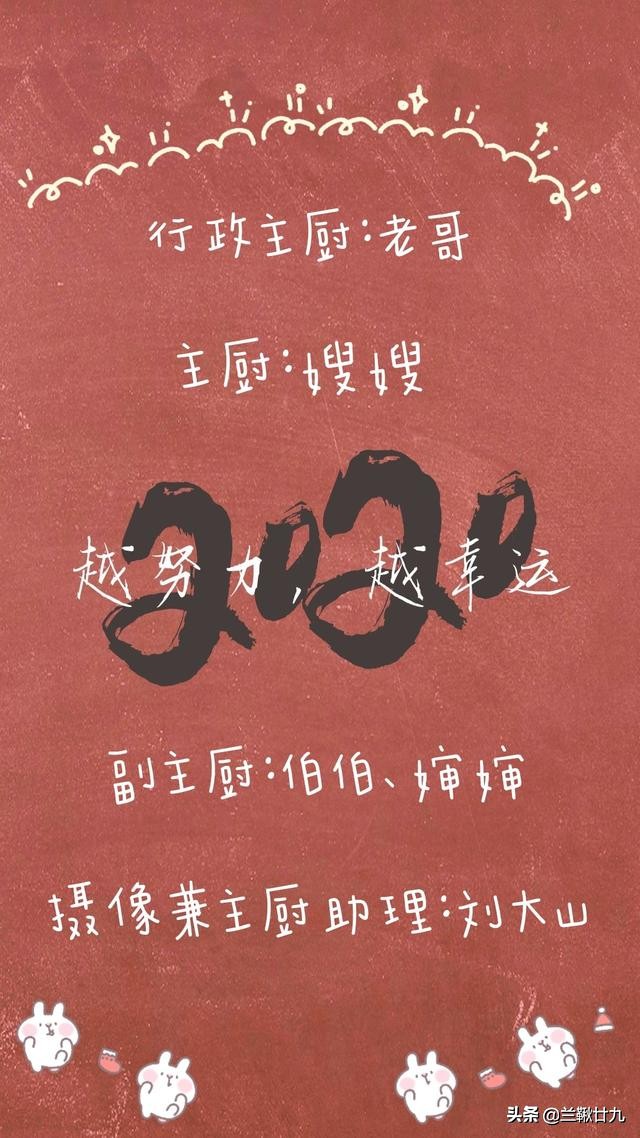 行政主厨:老哥
主厨:嫂嫂
2020
越努力,越幸运
副主厨:伯伯、婶婶
摄像兼主厨助理:刘大山
头条 @兰鞦廿九